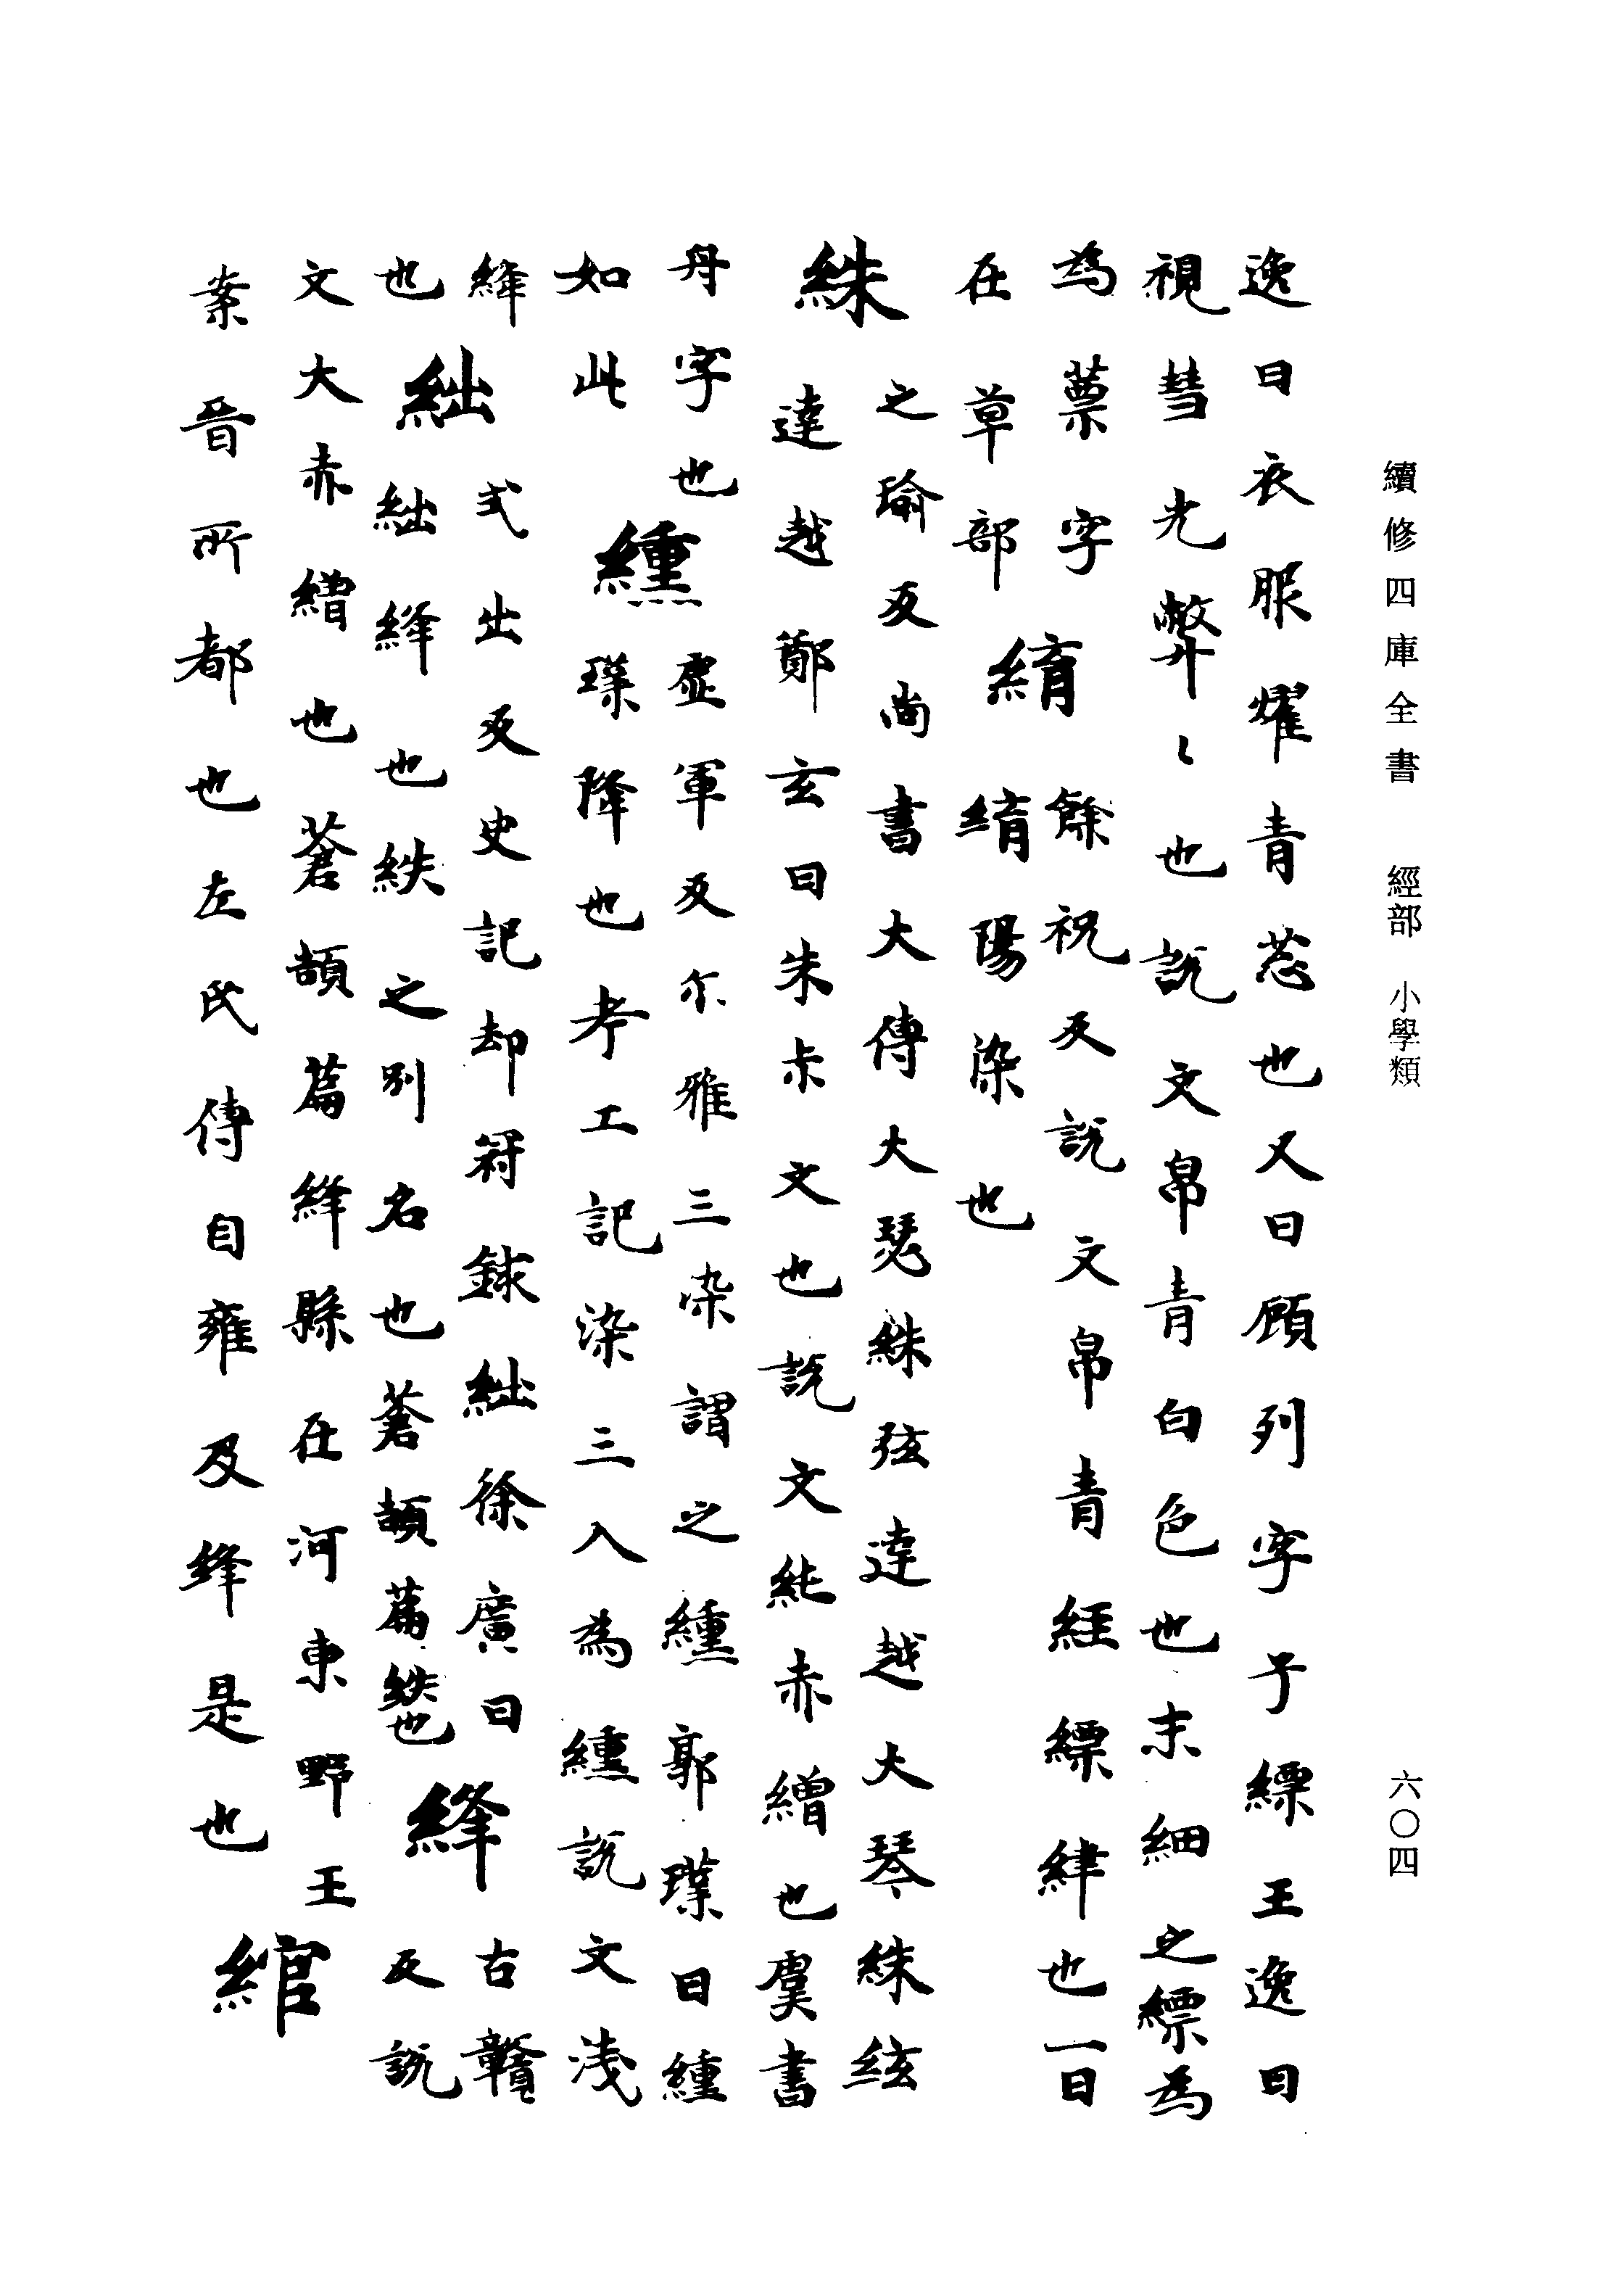 續修四庫全書 經部 小學類
六〇四
逸曰衣服燿青葱也又曰顧列字子縹王逸曰
視彗光弊〻也說文帛青白色也末細之縹為
為蔈字餘祝反說文帛青經縹緯也一曰
在草部綃綃陽染也
絑之瑜反尚書大傳大瑟絑弦達越大琴絑絃
達越鄭玄曰朱朱文也說文純赤繒也虞書
丹字也纁虛軍反尒雅三染謂之纁郭璞曰纁
如此璞降也考工記染三入為纁說文淺
絳絀式出反史記却冠銶絀徐廣曰絳古贛
也絀絳也紩之別名也蒼頡篇紩也反說
文大赤繒也蒼頡篇絳縣在河東野王
案晉所都也左氏傳自雍及絳是也綰